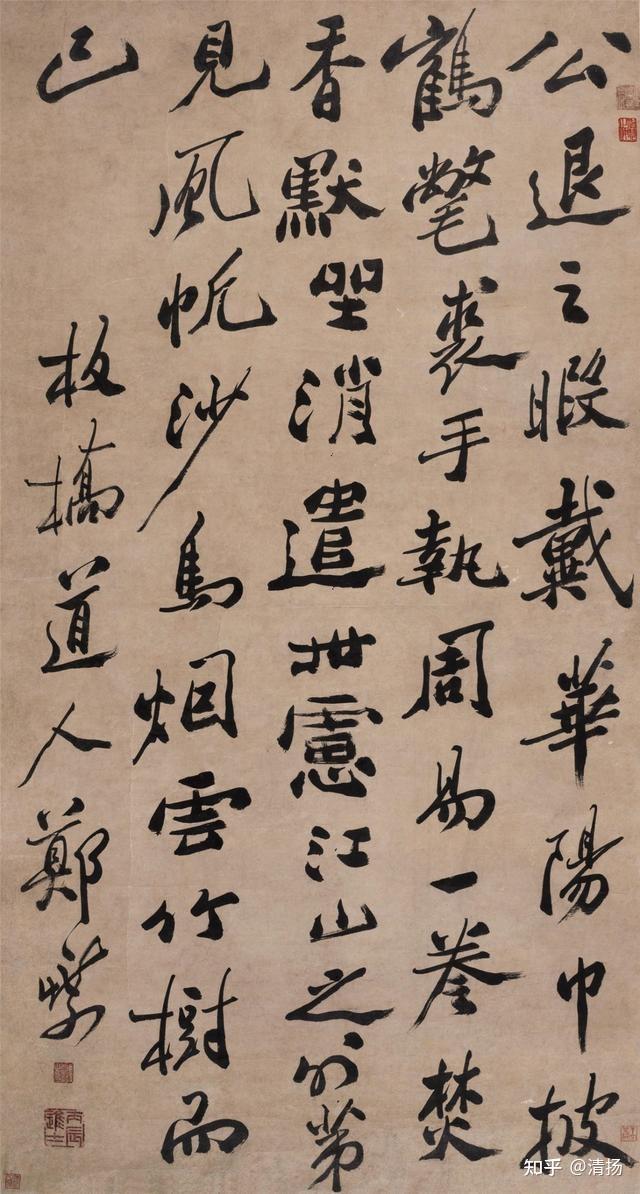 公退之暇戴華陽巾披
鶴氅裘手執周易一卷焚
香默坐消遣世慮江山之外第
見風帆沙鳥烟雲竹樹而
已
板橋道人鄭燮
丙辰進士
知乎 @清扬